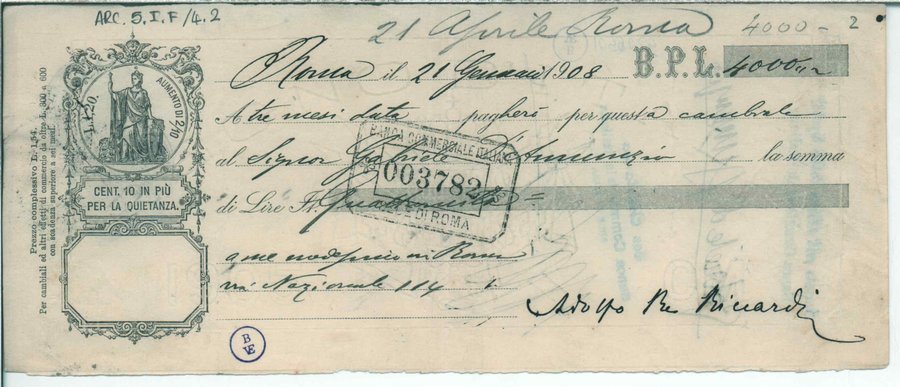 ARC. 5. I. F/4.2
21 Aprile Roma 4000 - 2
Roma il 21 Gennaio 1908 B.P.L. 4000
A tre mesi data pagherò per questa cambiale
al Signor Gabriele d'Annunzio la somma
di Lire Quattromila =
a me medesimo in Roma
via Nazionale 114
Adolfo Re Riccardi
BANCA COMMERCIALE ITALIANA
003782
SEDE DI ROMA
L. 1.20.
AUMENTO DI 2/10
CENT. 10 IN PIÙ
PER LA QUIETANZA.
Prezzo complessivo L. 1,54.
Per cambiali ed altri effetti di commercio da oltre L. 300 a 600
con scadenza superiore a sei mesi
B
VE